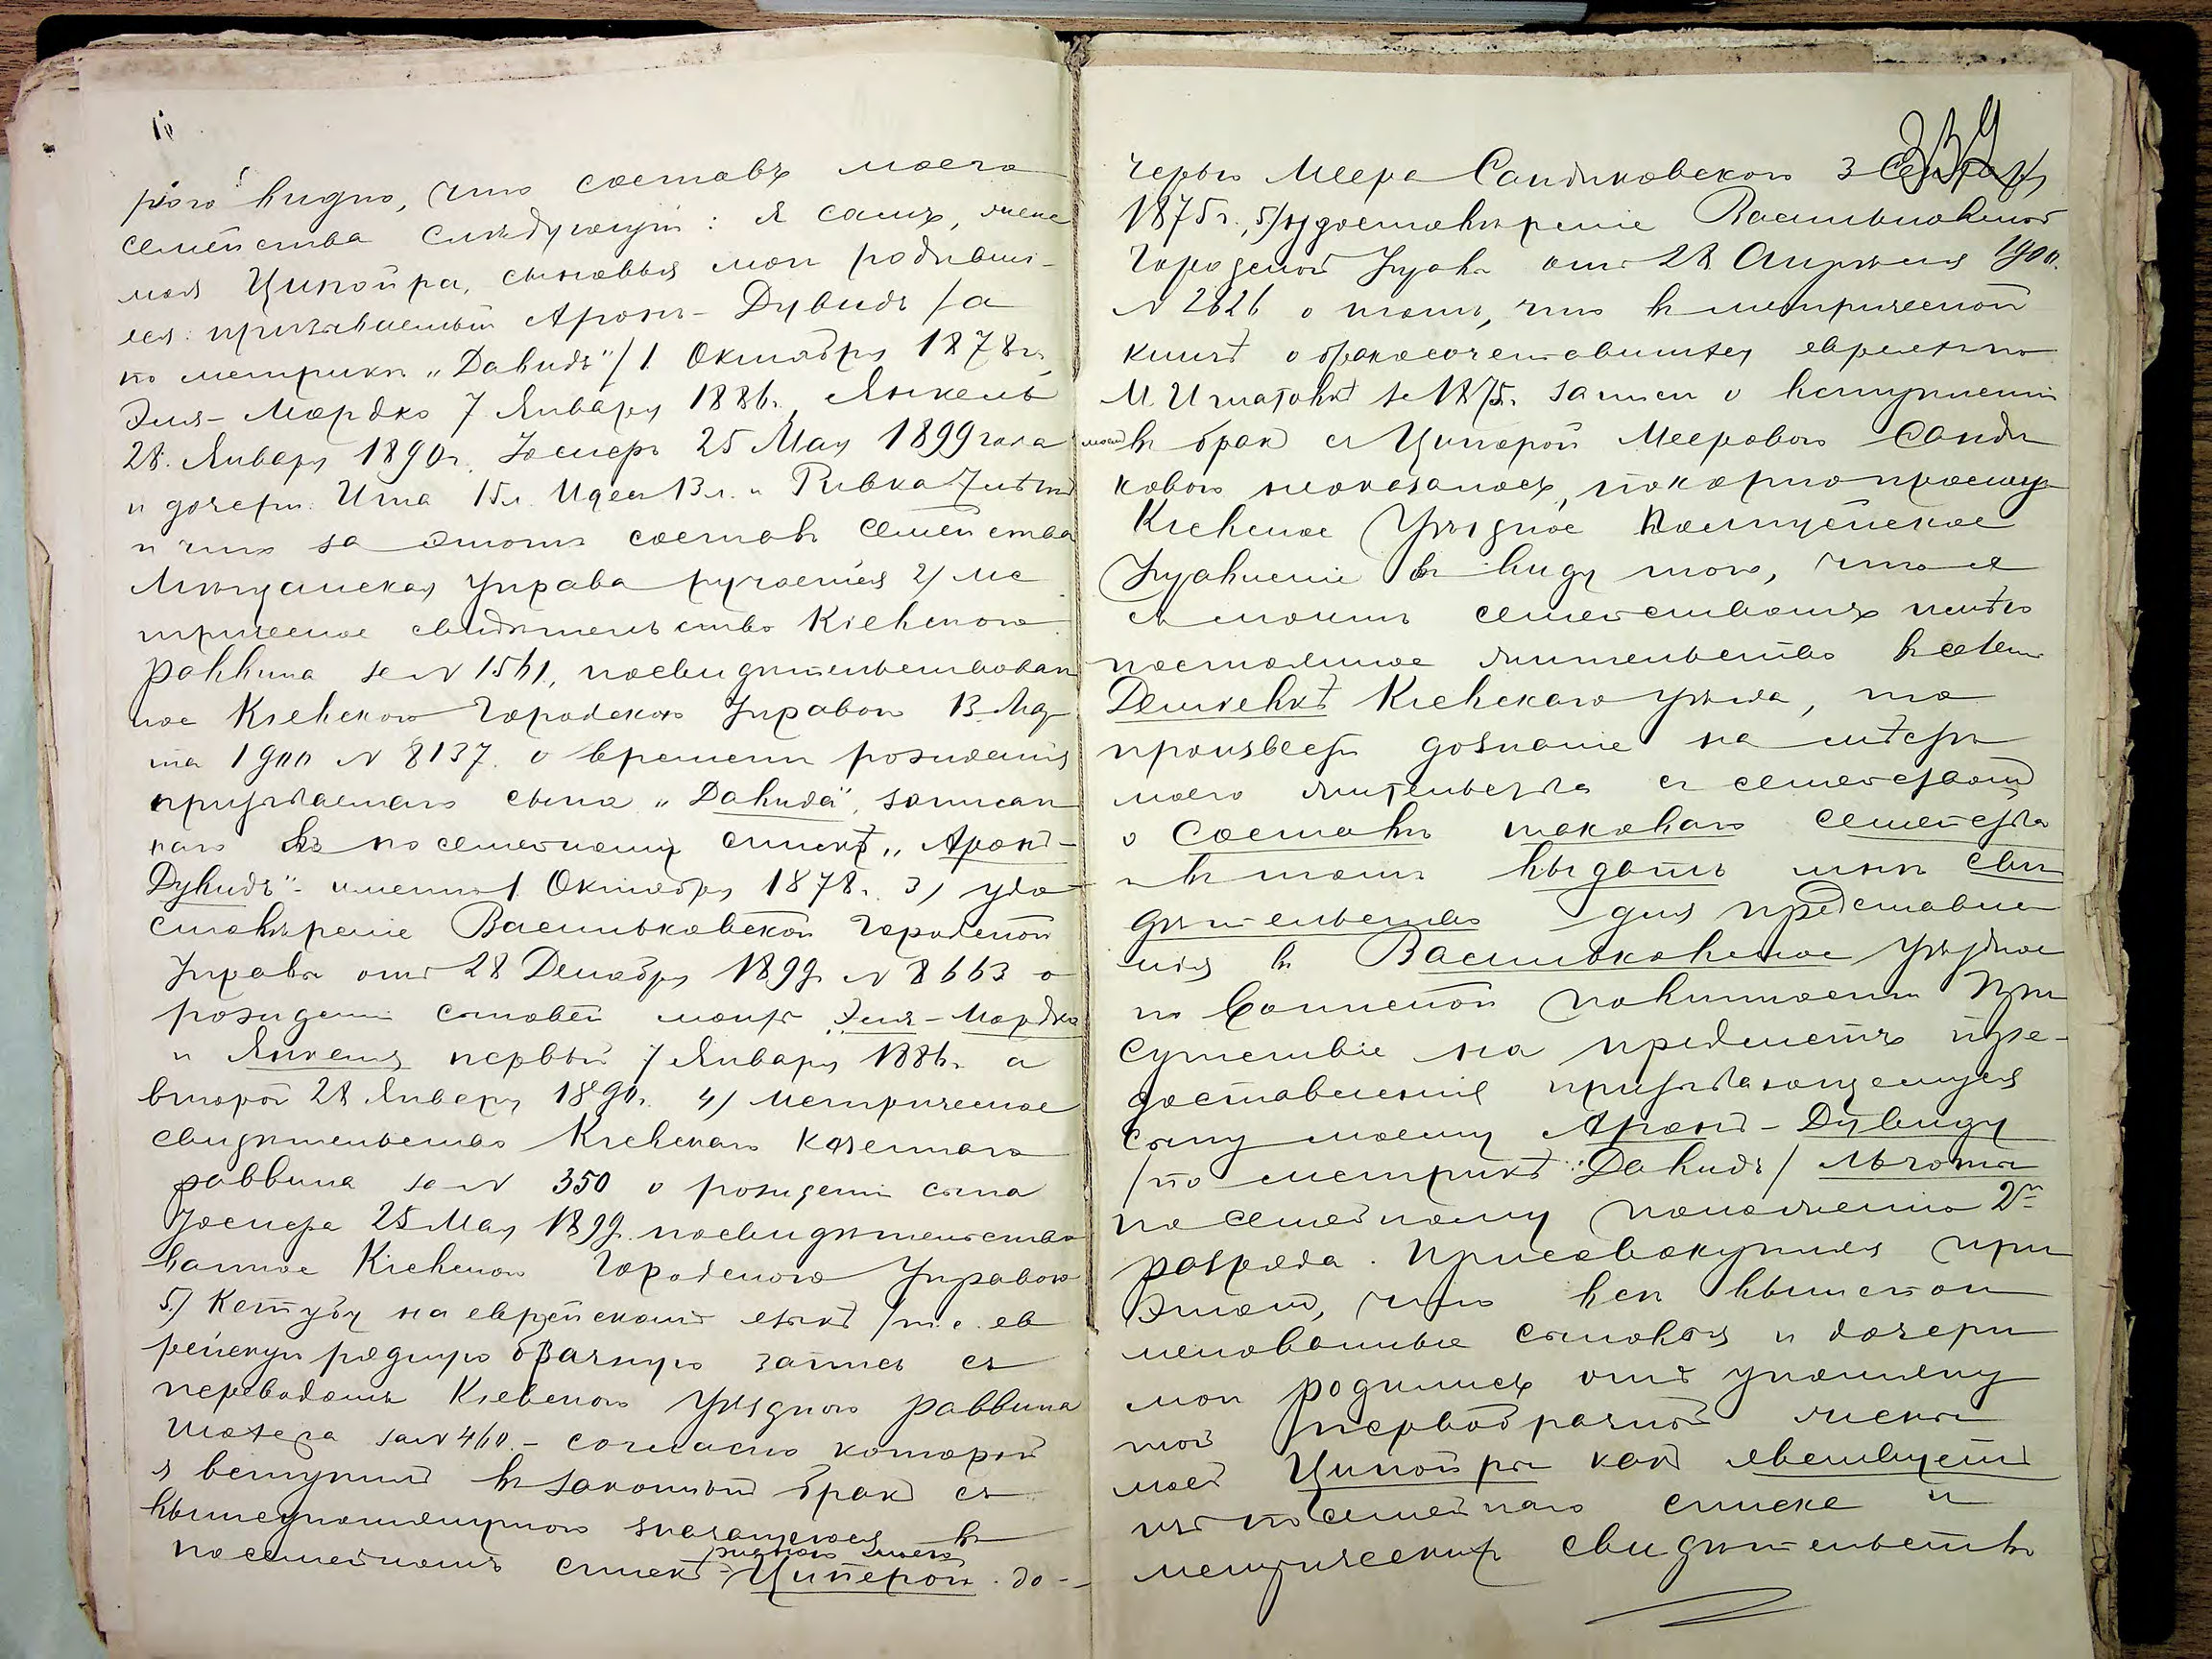 раго видно, что составъ моего
семейства слѣдующій: я самъ, жена
моя Ципойра, сыновья мои родивші-
еся: призываемый Аронъ-Дувидъ /а
по метрики „Давидъ"/ 1 Октября 1878 г.,
Эля-Мордко 7 Января 1886г., Янкель
28. Января 1890г. Іосперъ 25 Мая 1899 года
и дочери: Ита 15л. Идес 13л. и Ривка 7 лѣтъ
и что за этотъ составъ семейства
Мѣщанская Управа ручается 2/ Ме
трическое свидѣтельство Кіевского
раввина за N 1561, посвидѣтельствован
ное Кіевского Городского Управою 13 Мар
та 1900 N 8137. о времени рожденія
призываемаго сына „Давида", записан
наго въ посемейному списку „Аронъ-
Дувидъ"- именно 1 Октября 1878г. 3/ удо
стовѣреніе Васильковской Городской
Управы отъ 28 Декабря 1899 N 8663 о
рожденіи сыновей моихъ Эля-Мордко
и Янкеля первый 7 Января 1886г. а
второй 28 Января 1890г. 4/ Метрическое
свидѣтельство Кіевскаго Казеннаго
раввина за N 350 о рожденіи сына
Іоспера 25 Мая 1899 посвидѣтельство
ванное Кіевскою Городского Управою
5/ Кетубу на еврейскомъ языкѣ /т.е. ев
рейскую брачную запись съ
переводомъ Кіевского Уѣздного раввина
за N 460.- согласно которой
я вступилъ въ законный бракъ съ
вышеупомянутою значащеюся въ
посемейномъ спискѣ Циперою до-
черью Меера Сандиковского 3 Сентября
1875г., 5/ удостовѣреніе Васильковской
Городской Управы отъ 28 Апрѣля 1900.
N 2626 о томъ, что въ метрической
книгѣ о бракосочетавшихся евреяхъ по
М. Игнатовкѣ за 1875г. записи о вступленіи
моемъ въ бракъ съ Ципорой Мееровою Санди
ковою неоказалось, покорно прошу
Кіевское Уѣздное Полицейское
Управленіе въ виду того, что я
съ моимъ семействомъ имѣю
постоянное жительство въ селѣ
Деміевкѣ Кіевскаго уѣзда, то
произвести дознаніе на мѣстѣ
моего жительства съ семействомъ
о составѣ таковаго семейства
и въ томъ выдать мнѣ сви
дѣтельство для представле
нія въ Васильковское Уѣздное
по Воинской повинности При
сутствіе на предметъ пре-
доставленія призывающемуся
сыну моему Аронъ-Дувиду
/по метрикѣ „Давидъ"/ льготы
по семейному положенію 2го
разряда. Присовокупляя при
этомъ, что всѣ вышепои
менованные сыновья и дочери
мои родились отъ упомяну
той первобрачной жены
моей Ципойры какъ явствуетъ
изъ посемейнаго списка и
метрическихъ свидѣтельствъ